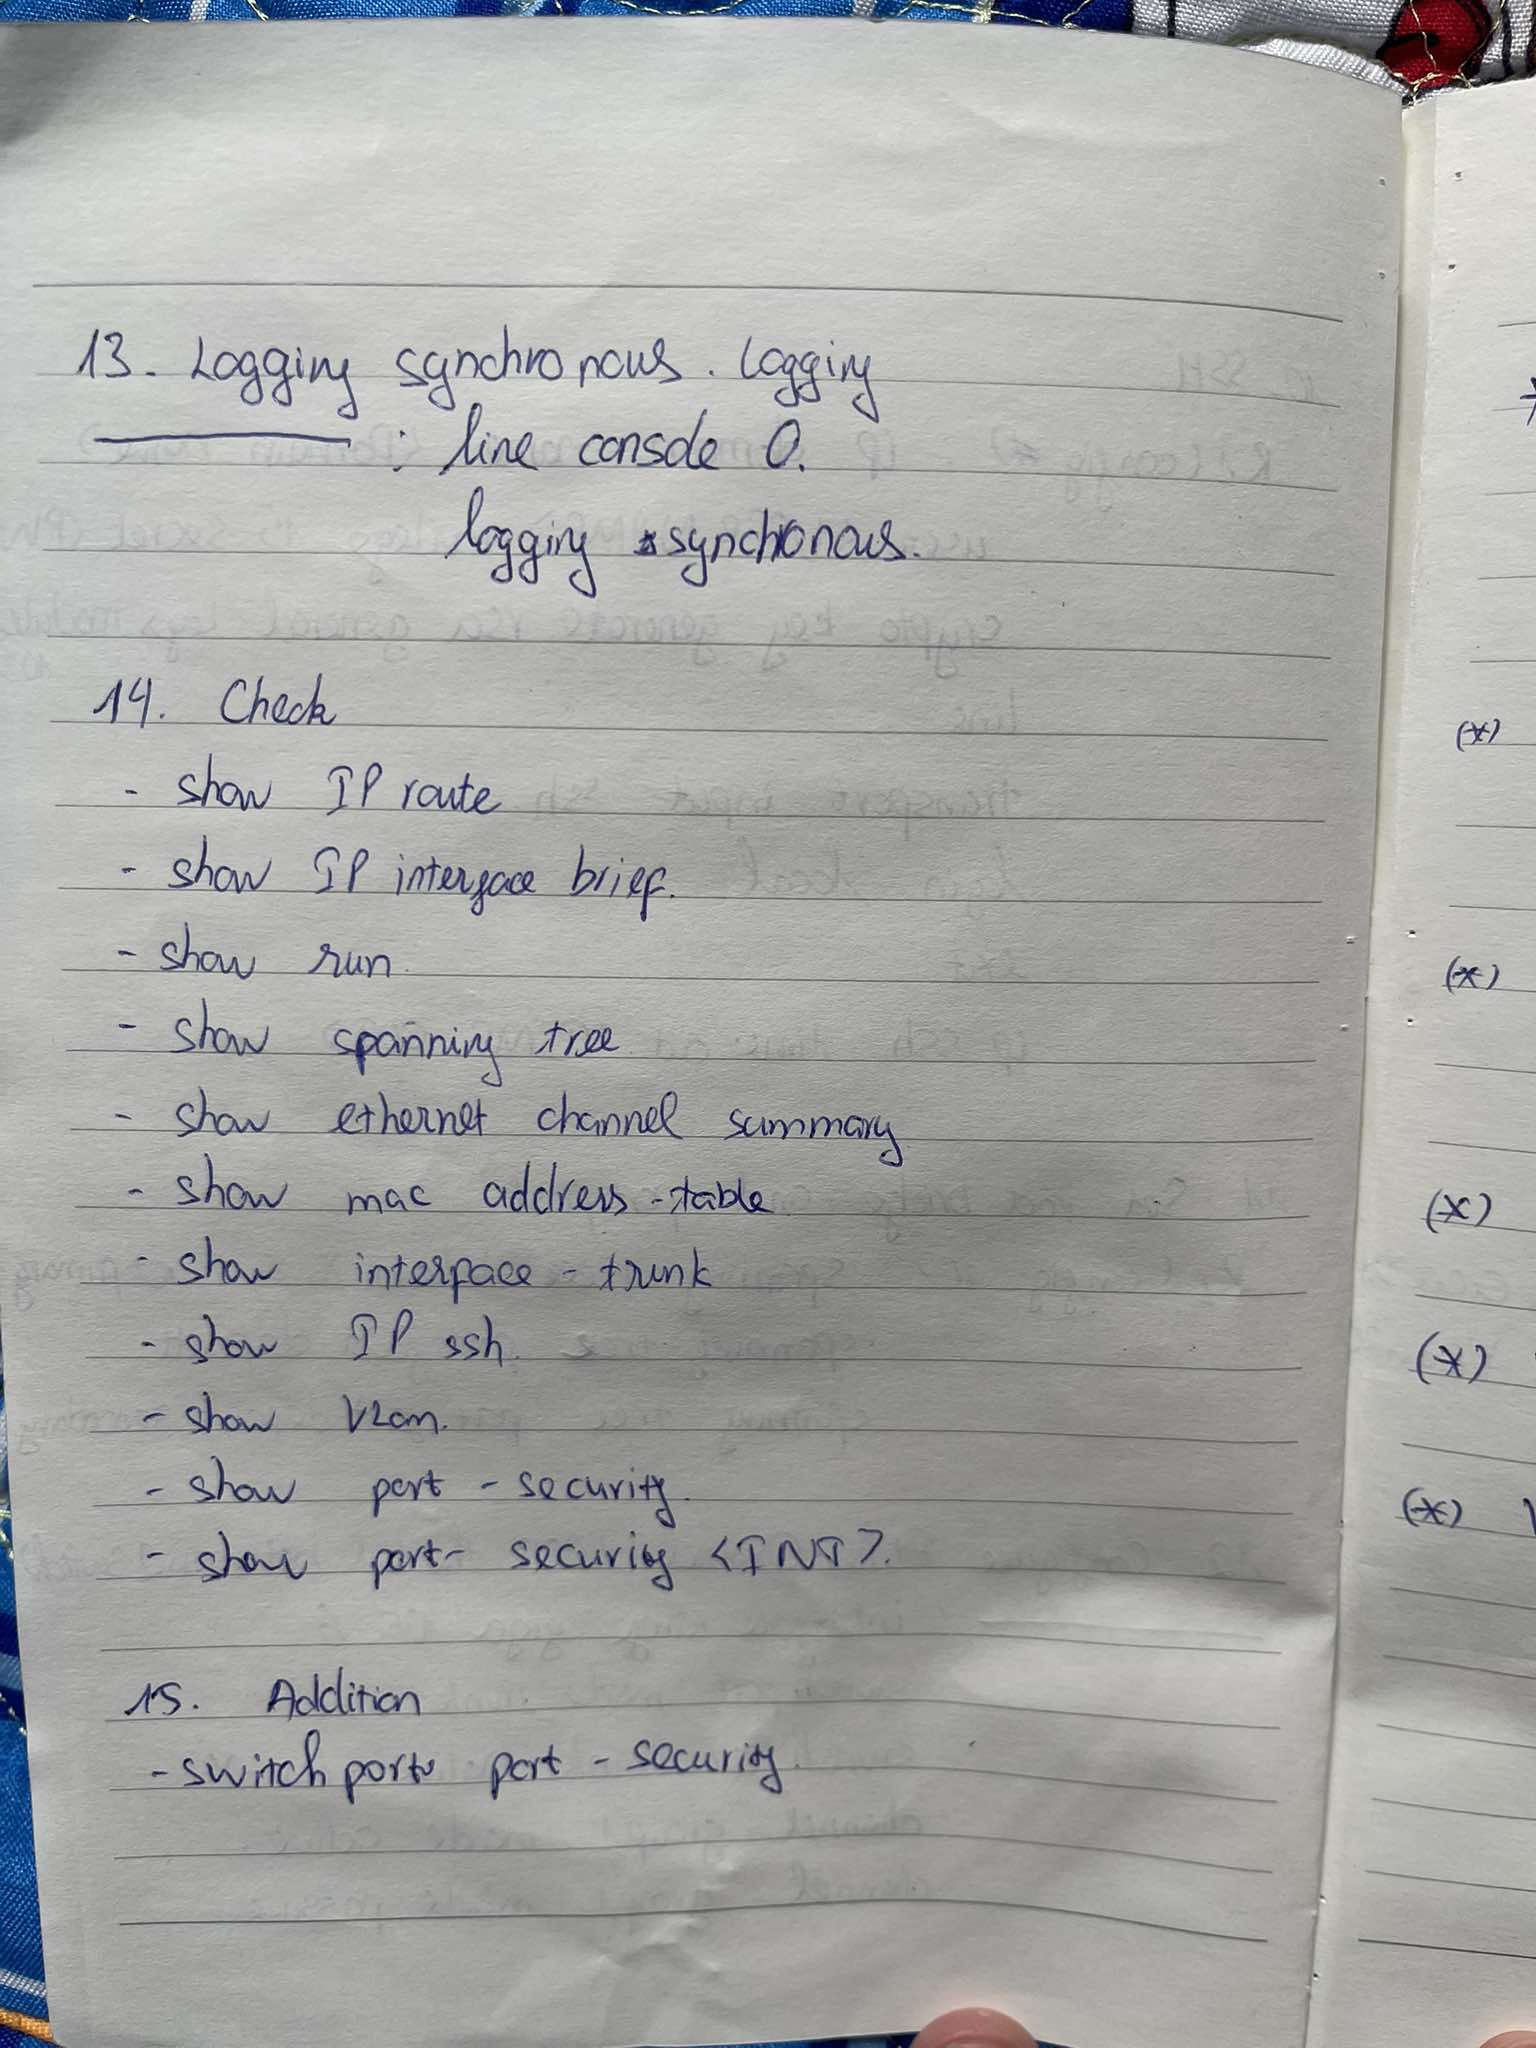 13. Logging synchronous. Logging
: line console 0.
logging synchronous.
14. Check
- show IP route
- show IP interface brief.
- show run.
- show spanning tree
- show ethernet channel summary
- show mac address-table
- show interface - trunk
- show IP ssh.
- show Vlan.
- show port - security.
- show port- security <INT>.
15. Addition
- switchport port - security.
(*)
(*)
(*)
(*)
(*)